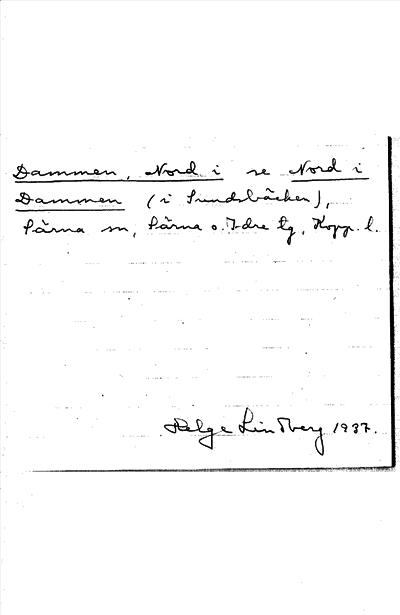 Dammen, Nord i se Nord i
Dammen (i Sundsbäcken),
Särna sn, Särna o. Idre tg, Kopp. l.
Helge Lindberg 1937.